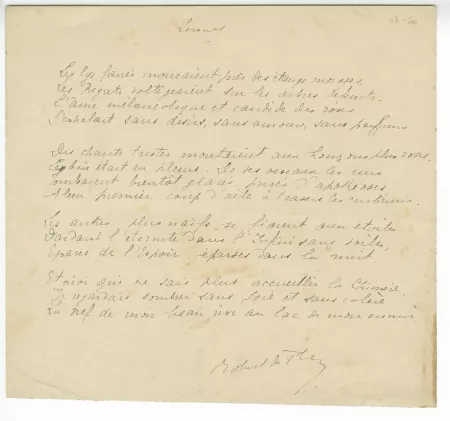 Sonnet
Les lys fanés mouraient près des étangs moroses,
Les Regrets voltigeaient sur les arbres défunts.
L'âme mélancolique et candide des roses
S'exhalait sans désirs, sans amour, sans parfums
Des chants tristes montaient aux horizons plus roses.
était en pleurs. De ses oiseaux les uns
tombaient bientôt glacés, d'apothéoses,
A leur premier coup d'aile à travers les
Les autres plus naïfs se fiaient aux étoiles
Dardant l'éternité dans l'Infini sans voiles,
Epaves de l'Espoir éparses dans la nuit
Et moi qui ne sais plus accueillir la Chimère,
Je regardais sombrer sans joie et sans colère
La nef de mon beau rêve au lac de mon ennui
Robert de